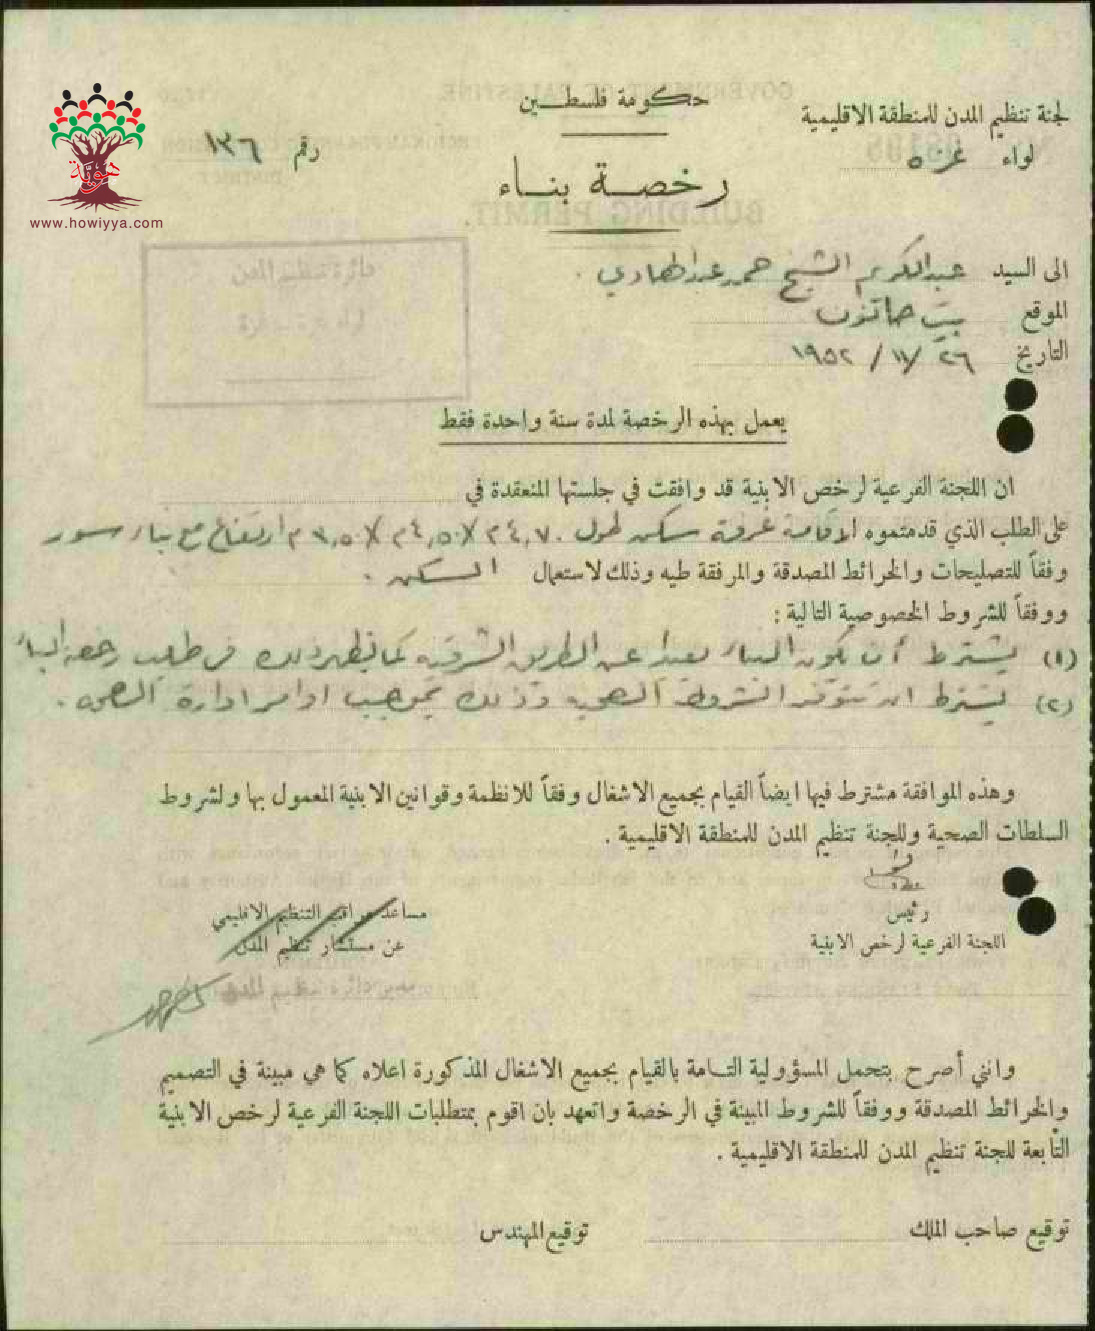 حكومة فلسطين
لجنة تنظيم المدن للمنطقة الاقليمية
لواء غزه
رقم ١٣٦
هوية
www.howiyya.com
رخصة بناء
الى السيد عبدالكريم الشيخ حمد عبدالهادي .
الموقع بيت حانون
التاريخ ٢٦ / ١١ / ١٩٥٢
يعمل بهذه الرخصة لمدة سنة واحدة فقط
ان اللجنة الفرعية لرخص الابنية قد وافقت في جلستها المنعقدة في
على الطلب الذي قدمتموه لاقامة غرفة سكن طول ٤,٧٠م × ٤,٥٠م × ٣,٥٠م ارتفاع مع بناء سور
وفقاً للتصليحات والخرائط المصدقة والمرفقة طيه وذلك لاستعمال السكن .
ووفقاً للشروط الخصوصية التالية :
(١) يشترط أن يكون البناء بعيدا عن الطريق الشرقية كما يظهر ذلك في طلب رخصة البناء
(٢) يشترط ان تتوفر الشروط الصحية وذلك بموجب اوامر ادارة الصحه .
وهذه الموافقة مشترط فيها ايضاً القيام بجميع الاشغال وفقاً للانظمة وقوانين الابنية المعمول بها ولشروط
السلطات الصحية وللجنة تنظيم المدن للمنطقة الاقليمية .
رئيس
اللجنة الفرعية لرخص الابنية
مساعد مراقب التنظيم الاقليمي
عن مستشار تنظيم المدن
دائرة تنظيم المدن
وانني أصرح بتحمل المسؤولية التامة بالقيام بجميع الاشغال المذكورة اعلاه كما هي مبينة في التصميم
والخرائط المصدقة ووفقاً للشروط المبينة في الرخصة واتعهد بان اقوم بمتطلبات اللجنة الفرعية لرخص الابنية
التابعة للجنة تنظيم المدن للمنطقة الاقليمية .
توقيع صاحب الملك
توقيع المهندس